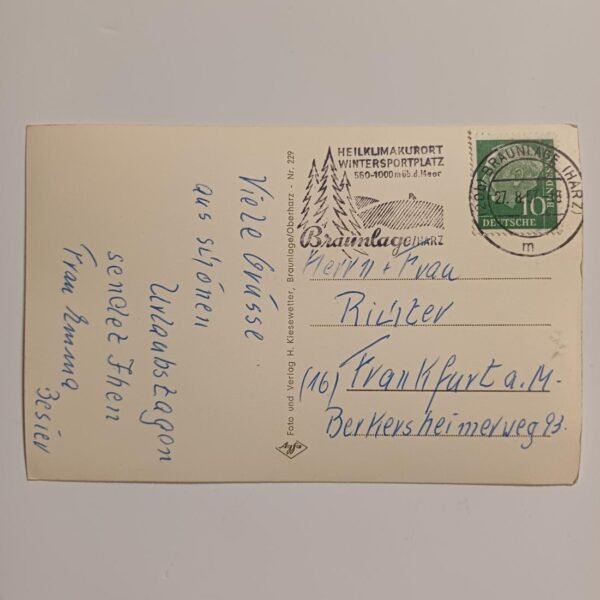 HEILKLIMAKURORT
WINTERSPORTPLATZ
560-1000 m üb. d. Meer
Braunlage/HARZ
BRAUNLAGE (HARZ)
27. 8.
m
10
BUNDESPOST
DEUTSCHE
Viele Grüsse
aus schönen
Urlaubstagen
sendet Ihnen
Frau Emma
Besier
Foto und Verlag H. Kiesewetter, Braunlage/Oberharz - Nr. 229
Agfa
Herrn + Frau
Richter
(16) Frankfurt a. M.
Berkersheimerweg 93.